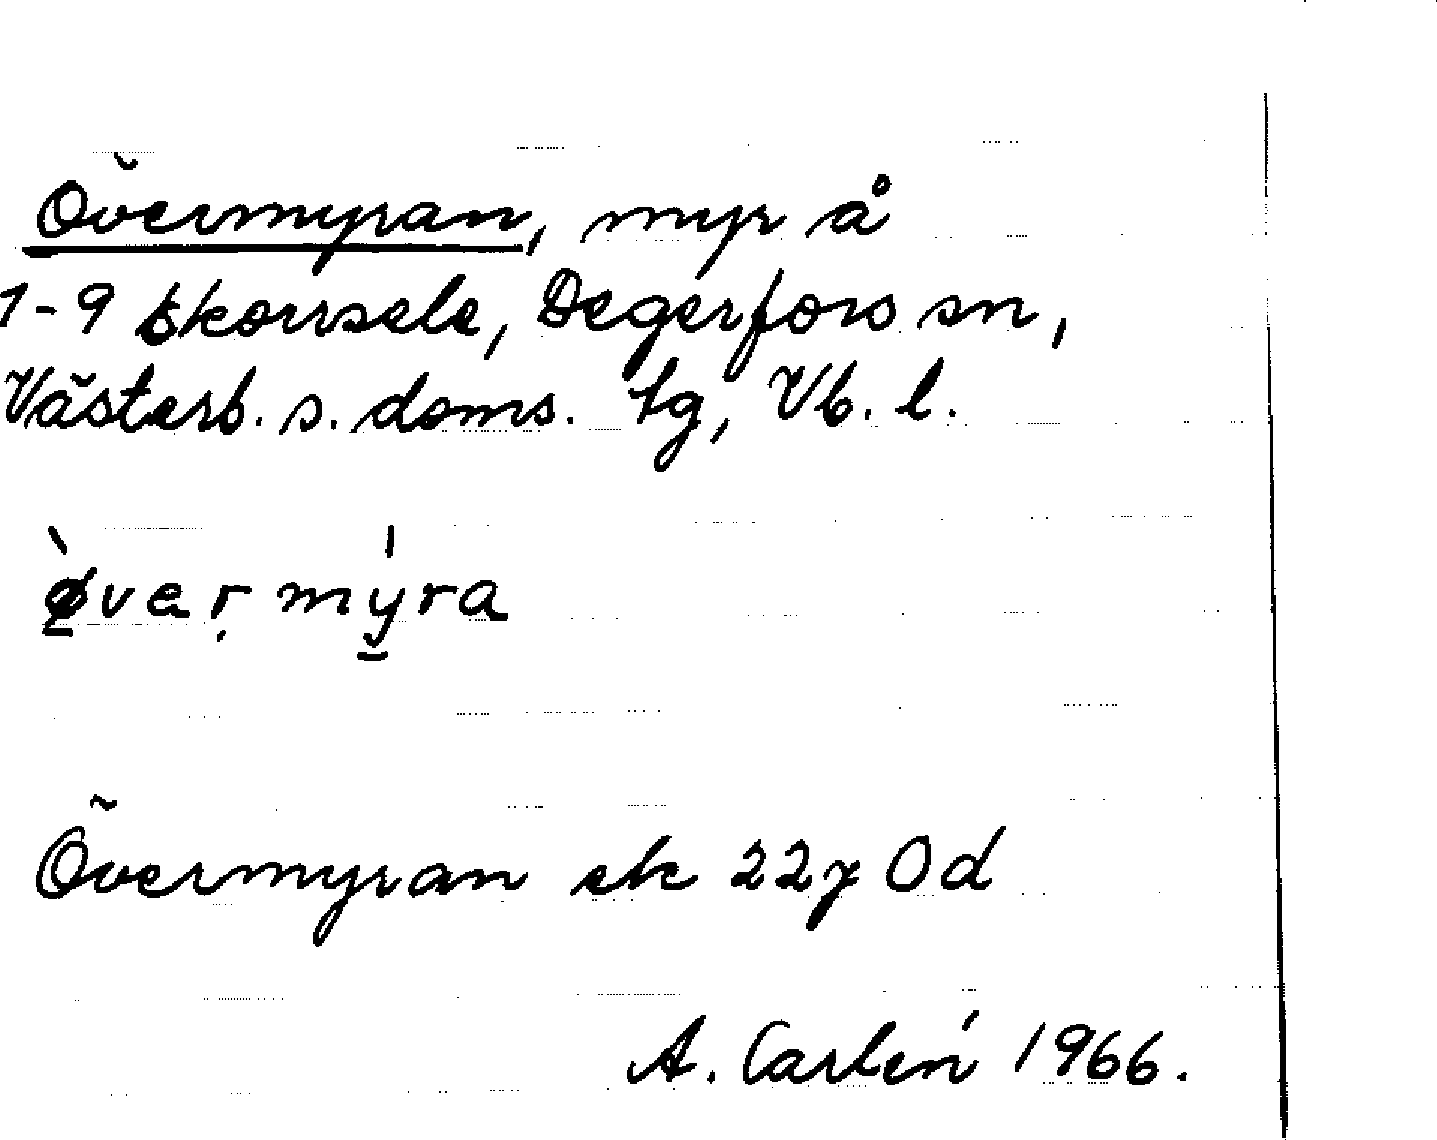 Övermyran, myr å
1-9 Skorrsele, Degerfors sn,
Västerb. s. doms. tg, Vb. l.
ø̀vεr̥ mýra
Övermyran ek 22y 0d
A. Carlén 1966.